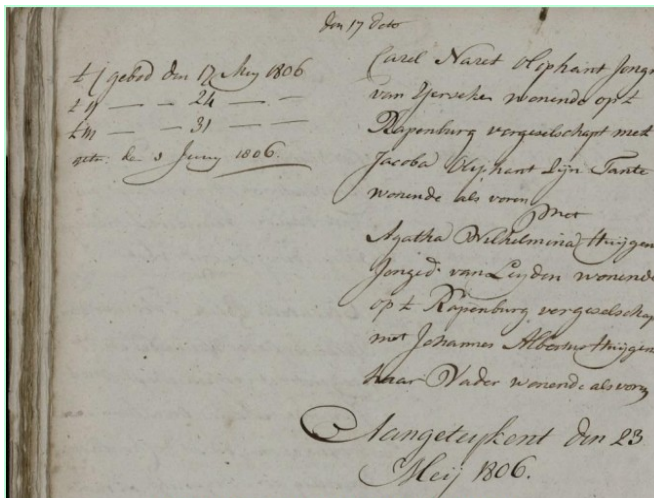 den 17 dito
t I gebod den 17 Mey 1806
t II — — 24 — —
t III — — 31 — —
getr: de 3 Juny 1806.
Carel Naret Oliphant Jongm
van Yerseke wonende op t
Rapenburg vergeselschapt met
Jacoba Oliphant Zijn Tante
wonende als voren
met
Agatha Wilhelmina Huijgen
Jonged. van Leyden wonende
op t Rapenburg vergeselschap
met Johannes Albertus Huijgen
haar Vader wonende als voren
Aangeteykent den 23
Meij 1806.